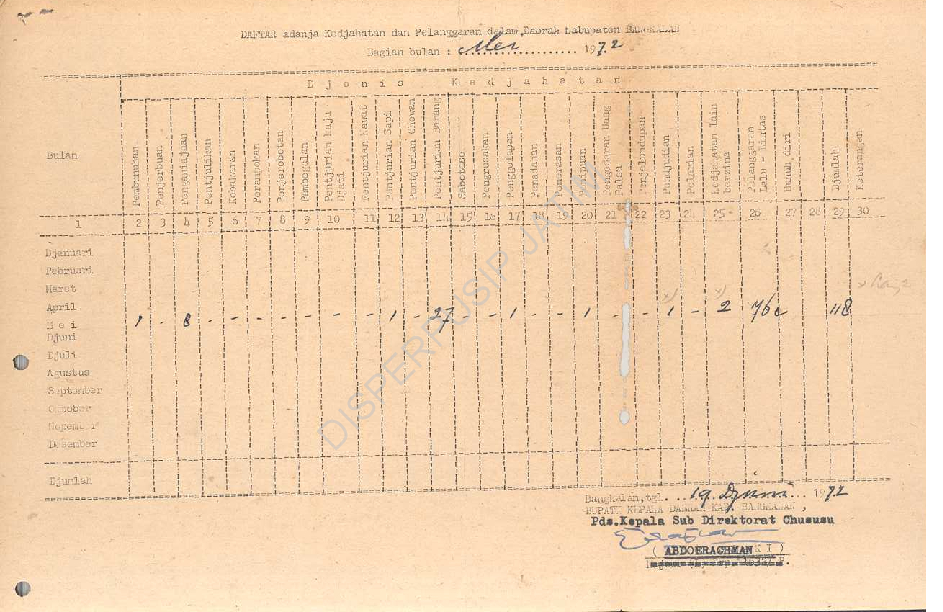 DAFTAR adanja Kedjahatan dan Pelanggaran dalam Daerah Kabupaten BANGKALAN
Bagian bulan : Mei 1972
Djenis Kedjahatan
Bulan
Pembunuhan
Penganiajaan
Pentjulikan
Kebakaran
Perampokan
Pembegalan
Pentjurian Kaju Djati
Pentjurian Kawat
Pentjurian Sapi
Pentjurian Hewan
Pentjurian Barang
Sabotase
Pengrusakan
Penggelapan
Penadahan
Pemerasan
Penipuan
Pengedaran Uang Palsu
Penjelundupan
Perdjudian
Kedjahatan lain
Pelanggaran Lalu - Lintas
Bunuh diri
Djumlah
Keterangan
1 2 3 4 5 6 7 8 9 10 11 12 13 14 15 16 17 18 19 20 21 22 23 24 25 26 27 28 29 30
Djanuari
Pebruari
Maret
April
Mei 1 - 8 - - - - - - - 1 - 27 - 1 - - 1 - - 1 - 2 76 118
Djuni
Djuli
Agustus
September
Oktober
Nopember
Desember
Djumlah
Bangkalan, tgl. 19 Djuni 1972
BUPATI KEPALA DAERAH KAB. BANGKALAN,
Pds.Kepala Sub Direktorat Chususu
( ABDOERACHMAN )
DISPERPUSIP JATIM